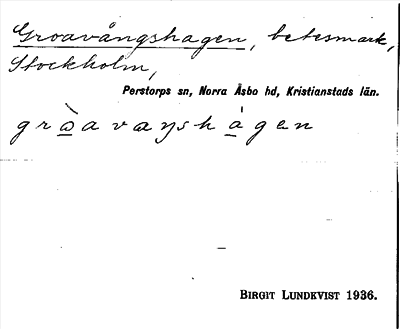 Groavångshagen, betesmark,
Stockholm,
Perstorps sn, Norra Åsbo hd, Kristianstads län.
BIRGIT LUNDKVIST 1936.